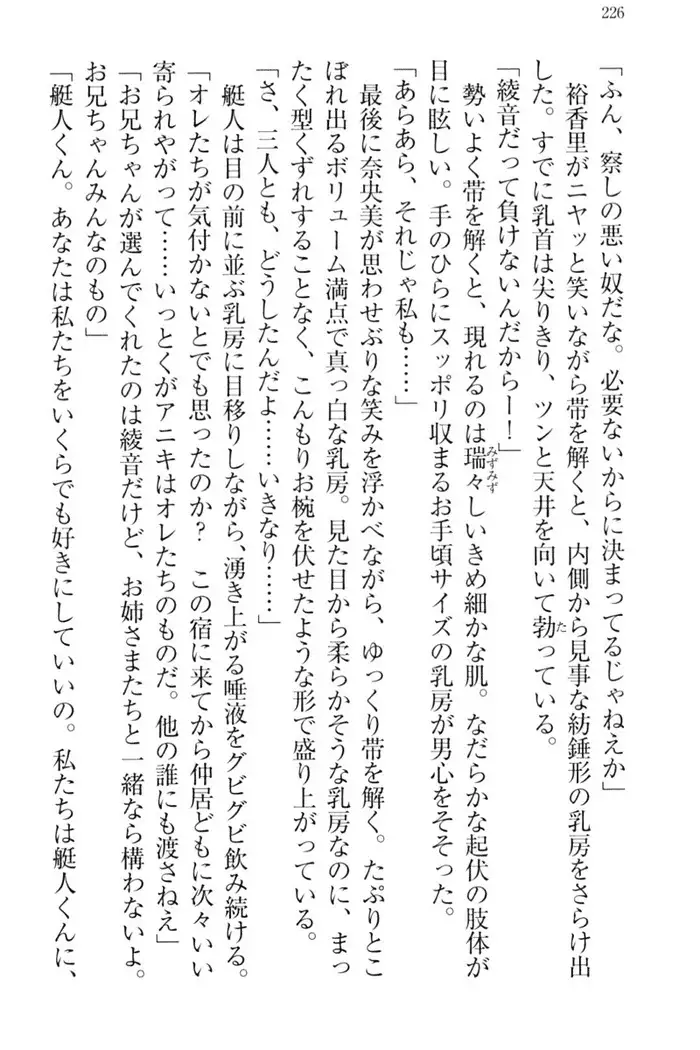 226
「ふん、察しの悪い奴だな。必要ないからに決まってるじゃねえか」
裕香里がニヤッと笑いながら帯を解くと、内側から見事な紡錘形の乳房をさらけ出
した。すでに乳首は尖りきり、ツンと天井を向いて勃っている。
「綾音だって負けないんだからー！」
勢いよく帯を解くと、現れるのは瑞々しいきめ細かな肌。なだらかな起伏の肢体が
目に眩しい。手のひらにスッポリ収まるお手頃サイズの乳房が男心をそそった。
「あらあら、それじゃ私も……」
最後に奈央美が思わせぶりな笑みを浮かべながら、ゆっくり帯を解く。たぷりとこ
ぼれ出るボリューム満点で真っ白な乳房。見た目から柔らかそうな乳房なのに、まっ
たく型くずれすることなく、こんもりお椀を伏せたような形で盛り上がっている。
「さ、三人とも、どうしたんだよ……いきなり……」
艇人は目の前に並ぶ乳房に目移りしながら、湧き上がる唾液をグビグビ飲み続ける。
「オレたちが気付かないとでも思ったのか？　この宿に来てから仲居どもに次々いい
寄られやがって……いっとくがアニキはオレたちのものだ。他の誰にも渡さねえ」
「お兄ちゃんが選んでくれたのは綾音だけど、お姉さまたちと一緒なら構わないよ。
お兄ちゃんみんなのもの」
「艇人くん。あなたは私たちをいくらでも好きにしていいの。私たちは艇人くんに、